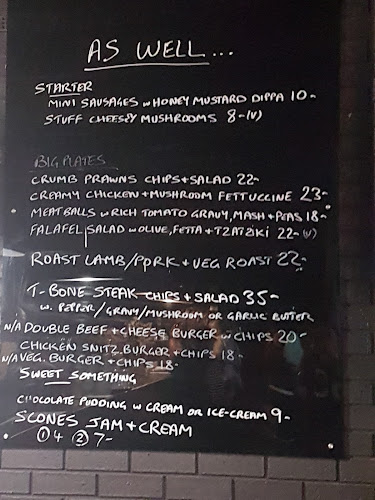 AS WELL...
STARTER
MINI SAUSAGES w HONEY MUSTARD DIPPA 10-
STUFF CHEESEY MUSHROOMS 8-(V)
BIG PLATES
CRUMB PRAWNS CHIPS + SALAD 22-
CREAMY CHICKEN + MUSHROOM FETTUCCINE 23-
MEATBALLS w RICH TOMATO GRAVY, MASH + PEAS 18-
FALAFEL SALAD w OLIVE, FETTA + TZATZIKI 22-(V)
ROAST LAMB/PORK + VEG ROAST 22-
T-BONE STEAK CHIPS + SALAD 35-
W. PEPPER/GRAVY/MUSHROOM OR GARLIC BUTTER
N/A DOUBLE BEEF + CHEESE BURGER w CHIPS 20-
CHICKEN SNITZ BURGER + CHIPS 18-
N/A VEG. BURGER + CHIPS 18-
SWEET SOMETHING
CHOCOLATE PUDDING w CREAM OR ICE-CREAM 9-
SCONES JAM + CREAM
① 4 ② 7-